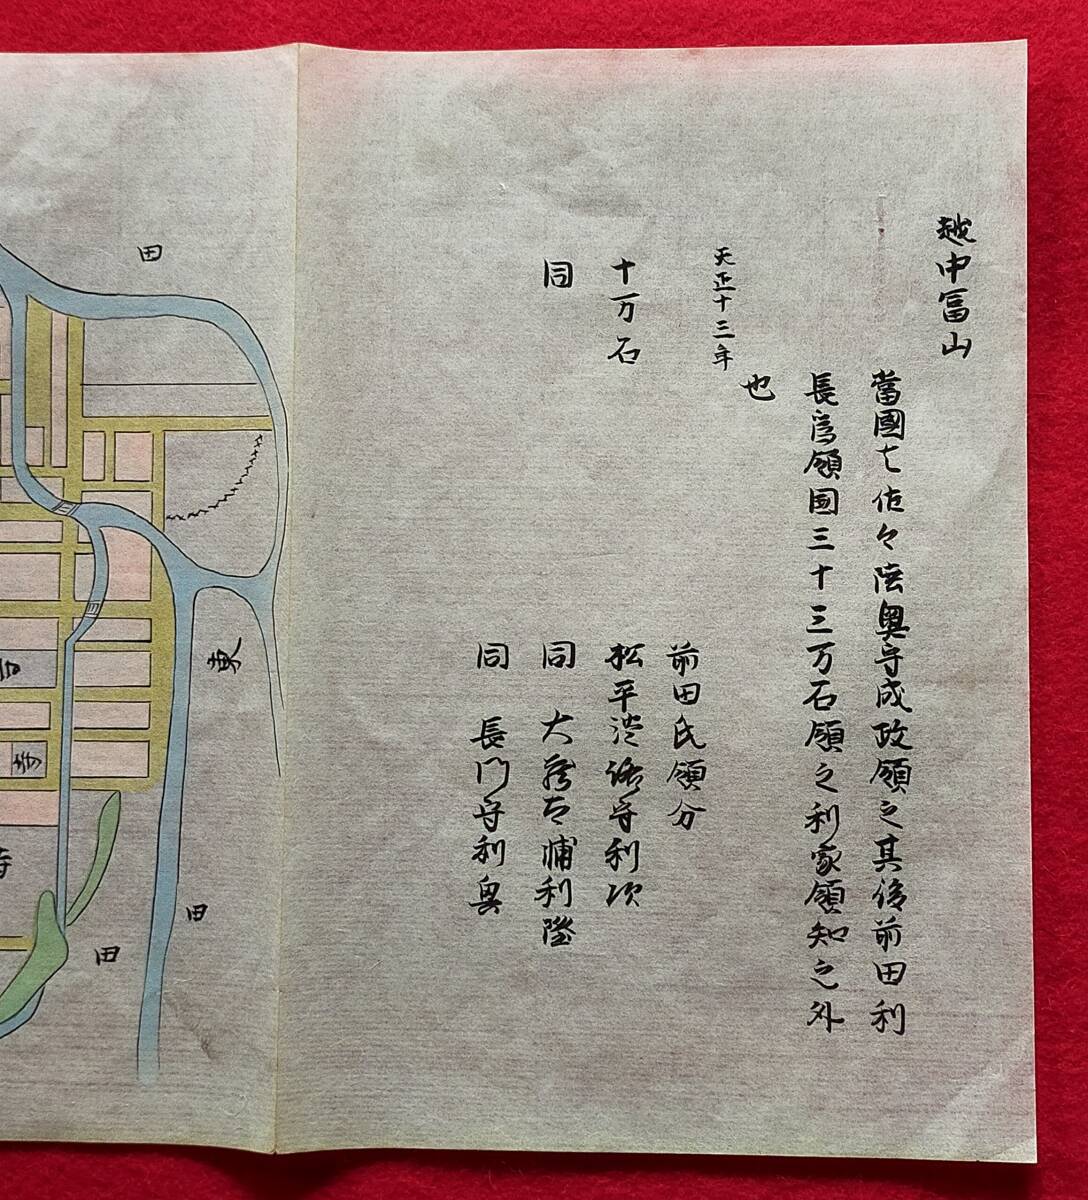 越中冨山
當國ハ佐々陸奥守成政領之其後前田利
長為領国三十三万石領之利家領知之外
也
天正十三年
前田氏領分
十万石
松平淡路守利次
同
同 大蔵大浦利隆
同 長門守利奥
田
東
田
田
寺
寺